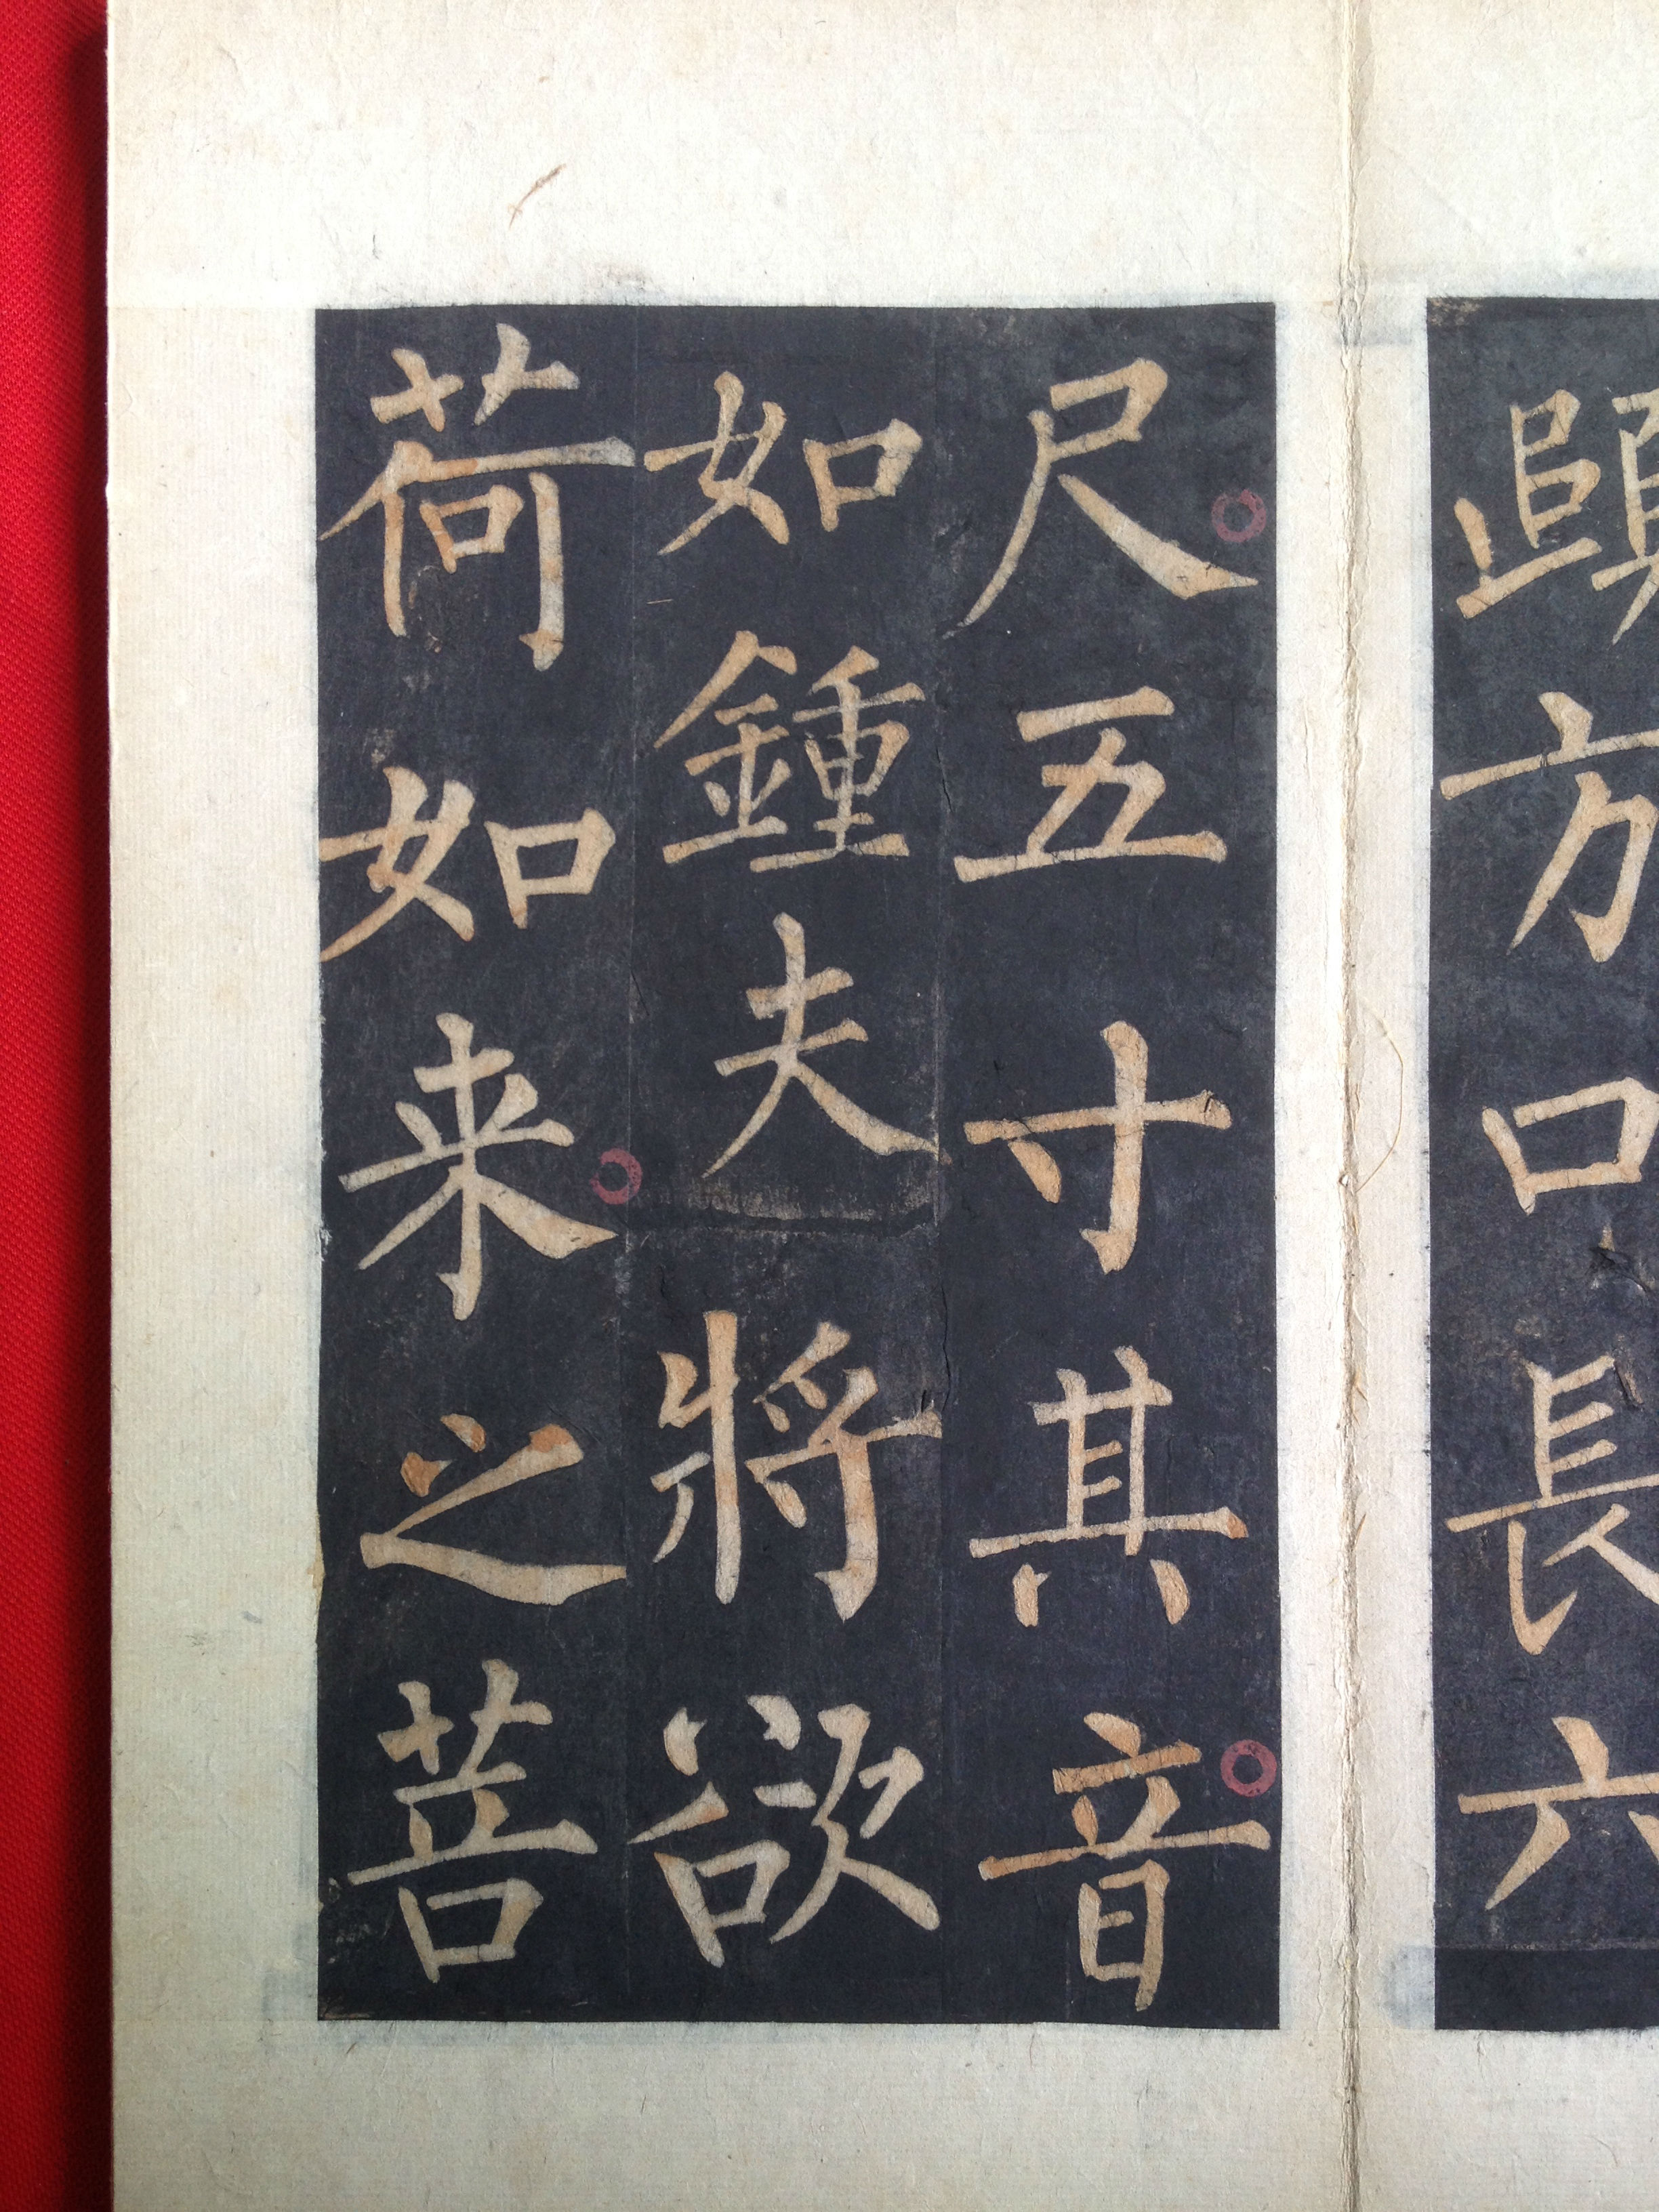 頤方口長六
尺五寸其音
如鍾夫將欲
荷如来之菩